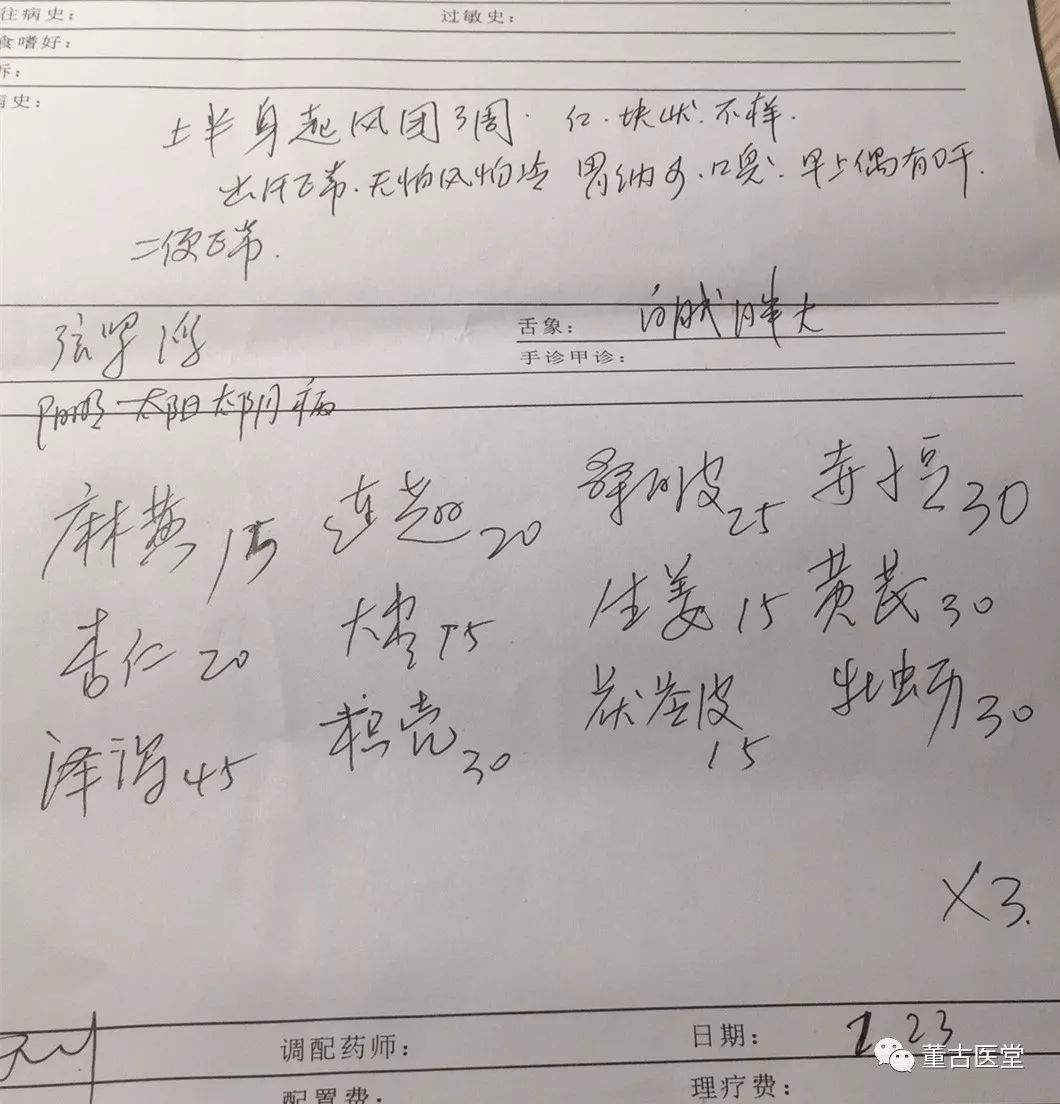 往病史： 过敏史：
食嗜好：
诉：
病史：
上半身起风团3周. 红.块状.不样.
出汗正常.无怕风怕冷 胃纳多.口臭.早上偶有口干.
二便正常.
弦 浮 舌象： 胖大
手诊甲诊：
阳明太阳太阴病
麻黄15 连翘20 桑白皮25 赤小豆30
杏仁20 大枣15 生姜15 黄芪30
泽泻45 枳壳30 茯苓皮15 牡蛎30
×3.
调配药师： 日期： 23
配置费： 理疗费：
董古医堂